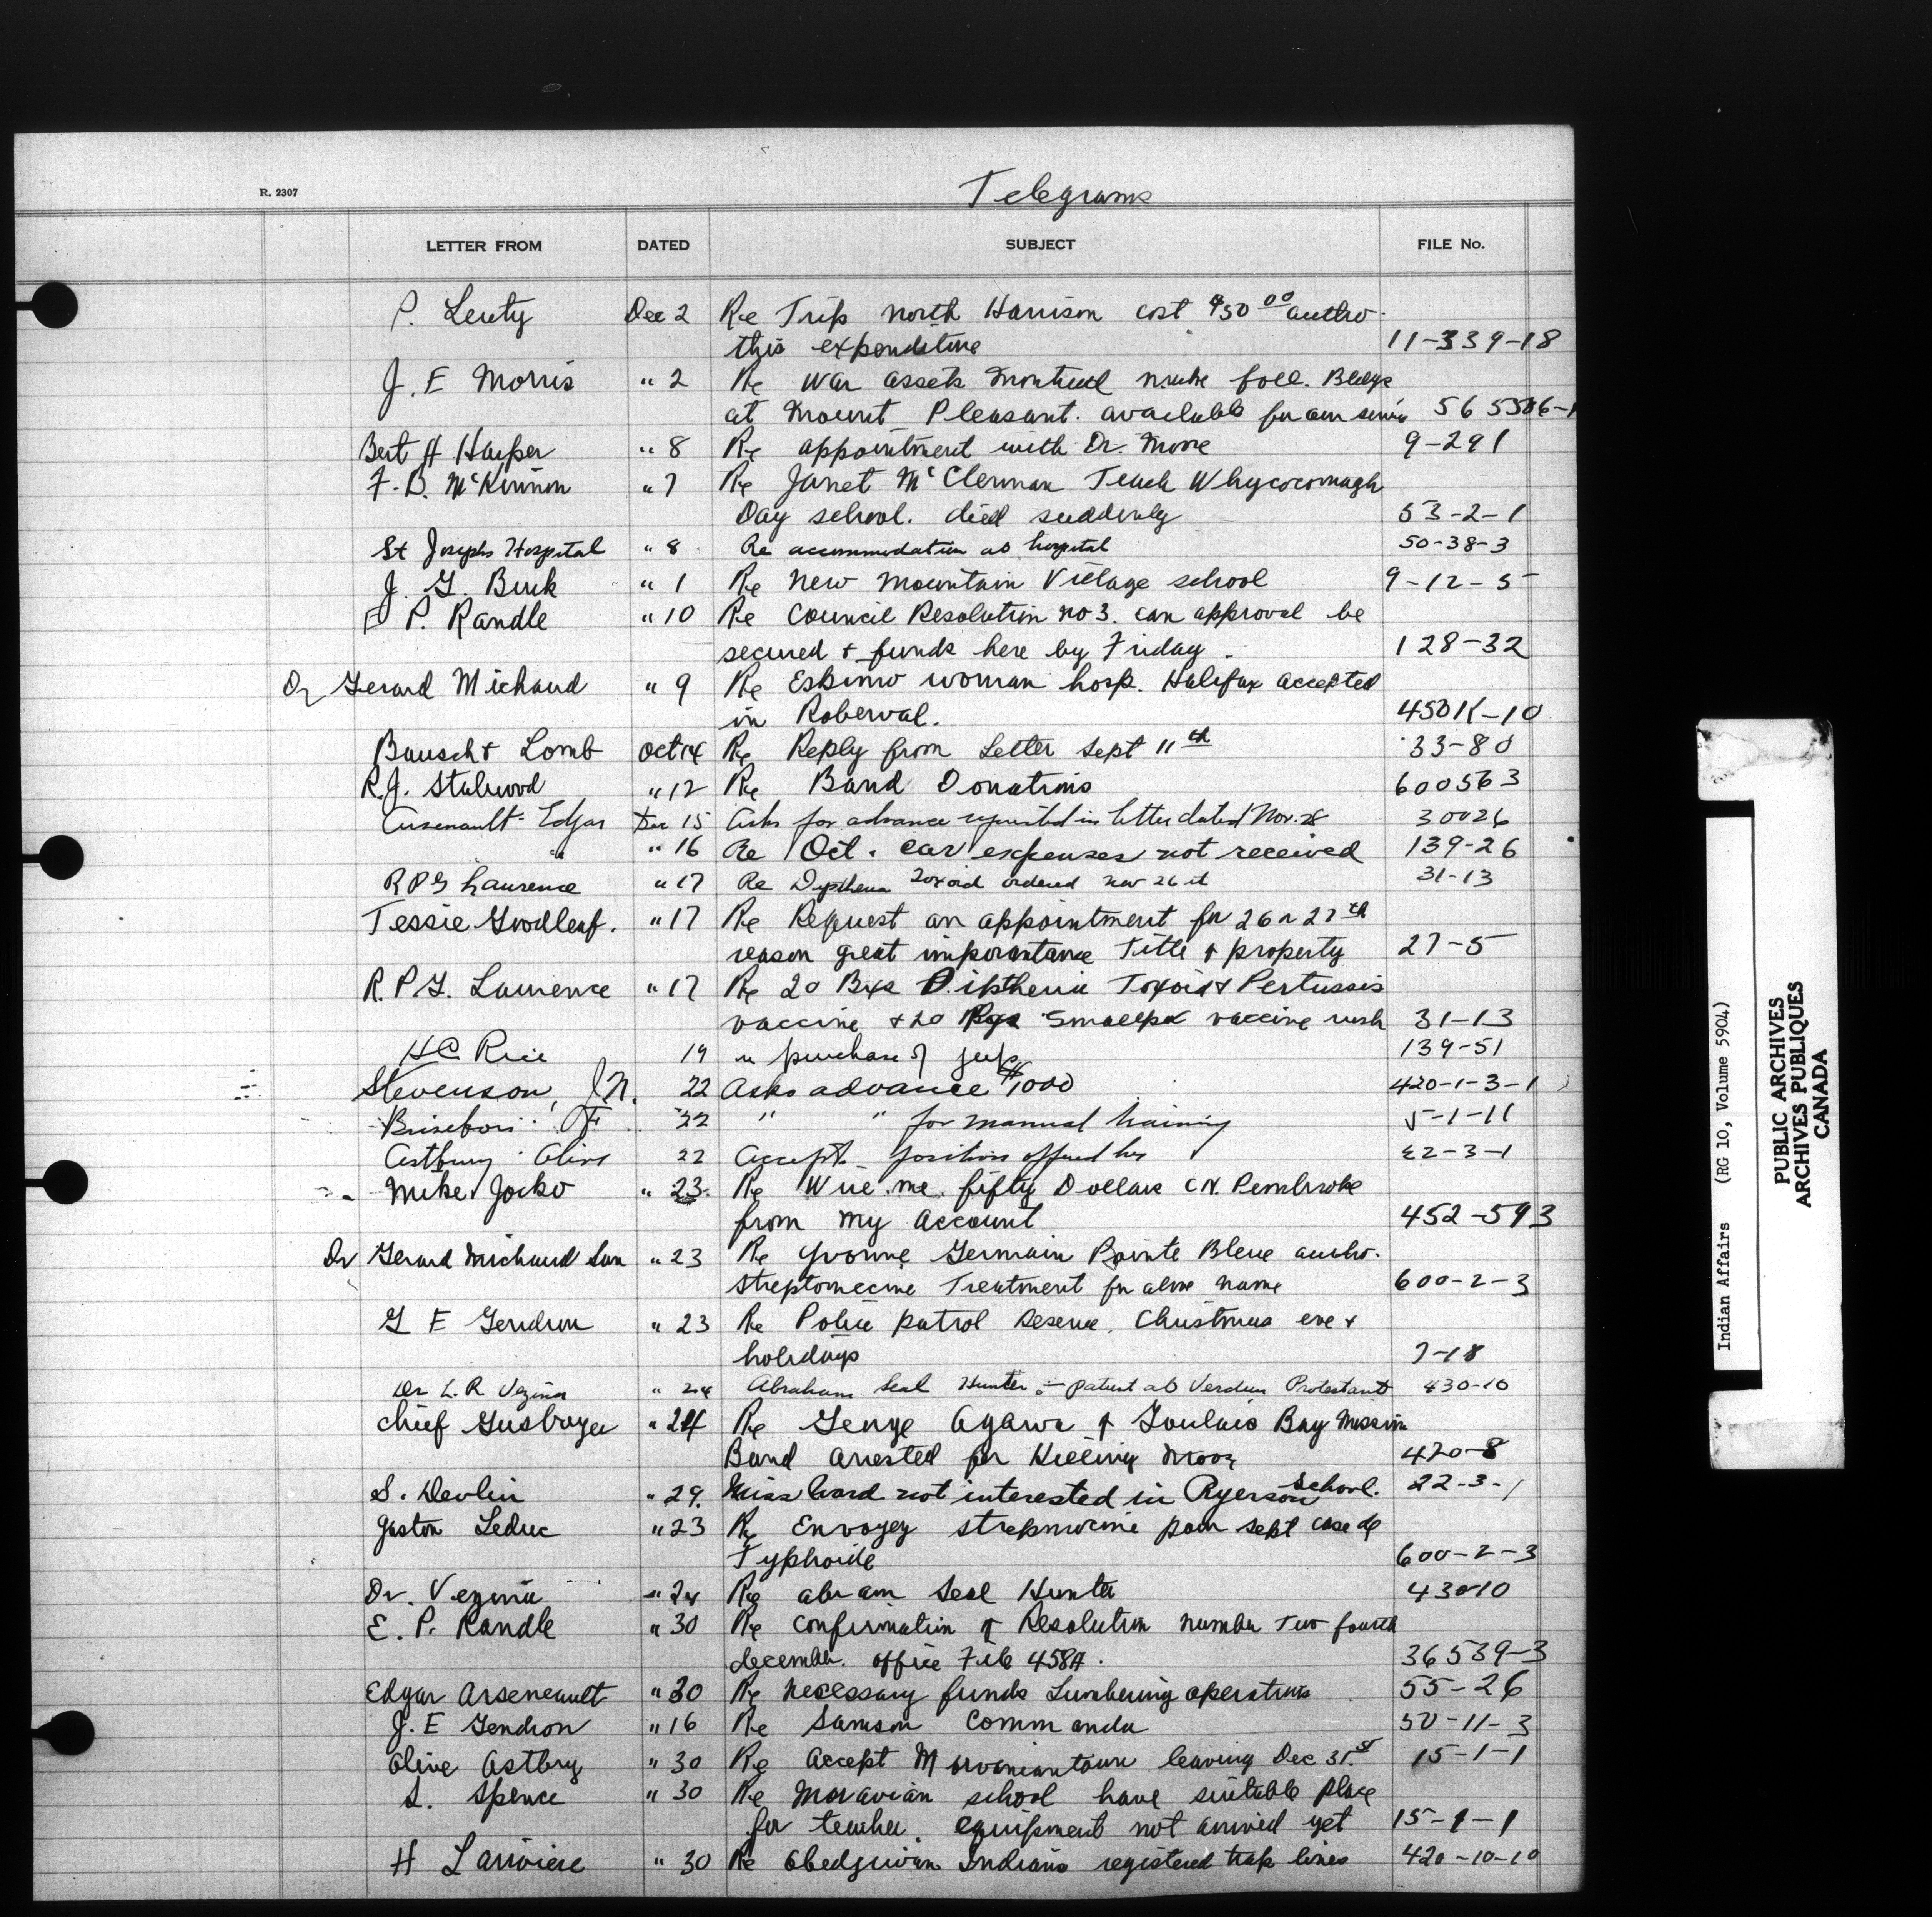 R. 2307
Telegrams
LETTER FROM DATED SUBJECT FILE No.
P. Lenty Dec 2 Re Trip north Harrison cost $50 00 autho
this expenditure 11-339-18
J. E Morris " 2 Re War assets Montreal make foll. Bldgs
at Mount Pleasant. available for our 565506-1
Bert H Harper " 8 Re appointment with Dr. Moore 9-291
F. B. McKinnon " 7 Re Janet McClennan Teach Whycocomagh
Day school. died suddenly 53-2-1
St Josephs Hospital " 8 Re accommodation at hospital 50-38-3
J. G. Burk " 1 Re New Mountain Village school 9-12-5
E P. Randle " 10 Re Council Resolution no 3. can approval be
secured + funds here by Friday. 128-32
Dr Gerard Michaud " 9 Re Eskimo woman hosp. Halifax accepted
in Roberval. 450K-10
Bausch + Lomb Oct 14 Re Reply from Letter Sept 11th 33-80
R.J. Stalwood " 12 Re Band Donations 600563
Arsenault Edgar Dec 15 Asks for advance requested in letter dated Nov. 28 30026
" " 16 Re Oct. car expenses not received 139-26
R P G Laurence " 17 Re Toxoid ordered nov 26 31-13
Tessie Goodleaf. " 17 Re Request an appointment for 26 or 27th
reason great importantance Title & property 27-5
R. P. G. Laurence " 17 Re 20 Bxs Diptheria Toxoid + Pertussis
vaccine + 20 Smallpox vaccine rush 31-13
HC Rice 19 re purchase of jeep 139-51
Stevenson, J.N. 22 Asks advance $1000 420-1-3-1
Brisebois F 22 " " for manual training 5-1-11
Astbury Olive 22 Accepts position offered her 22-3-1
Mike Jocko " 23 Re Wire me fifty Dollars C.N. Pembroke
from my account 452-593
Dr Gerard Michaud " 23 Re Yvonne Germain Pointe Bleue autho.
Streptomecine Treatment for above name 600-2-3
G E Gendron " 23 Re Police patrol Reserve. Christmas eve +
holidays 7-18
Dr L. R. Vezina " 24 Abraham Seal Hunter - patient at Verdun Protestant 430-10
Chief Gus Boyer " 24 Re George Agawa of Goulais Bay Mission
Band arrested for Killing Moose 420-8
S. Devlin " 29. Miss Ward not interested in Ryerson School. 22-3-1
Gaston Leduc " 23 Re Envoyey strepmocine pour sept case de
Typhoide 600-2-3
Dr. Vezina " 24 Re abram Seal Hunter 430-10
E. P. Randle " 30 Re Confirmation of Resolution number Two fourth
december. office File 458A. 36539-3
Edgar Arseneault " 30 Re necessary funds Lumbering operations 55-26
J. E Gendron " 16 Re Samson Commanda 50-11-3
Olive Astbry " 30 Re Accept leaving Dec 31st 15-1-1
L. Spence " 30 Re Moravian school have suitable place
for teacher. equipment not arrived yet 15-1-1
H Lariviere " 30 Re Obedjiwan Indians registered trap lines 420-10-10
Indian Affairs (RG 10, Volume 5904)
PUBLIC ARCHIVES
ARCHIVES PUBLIQUES
CANADA